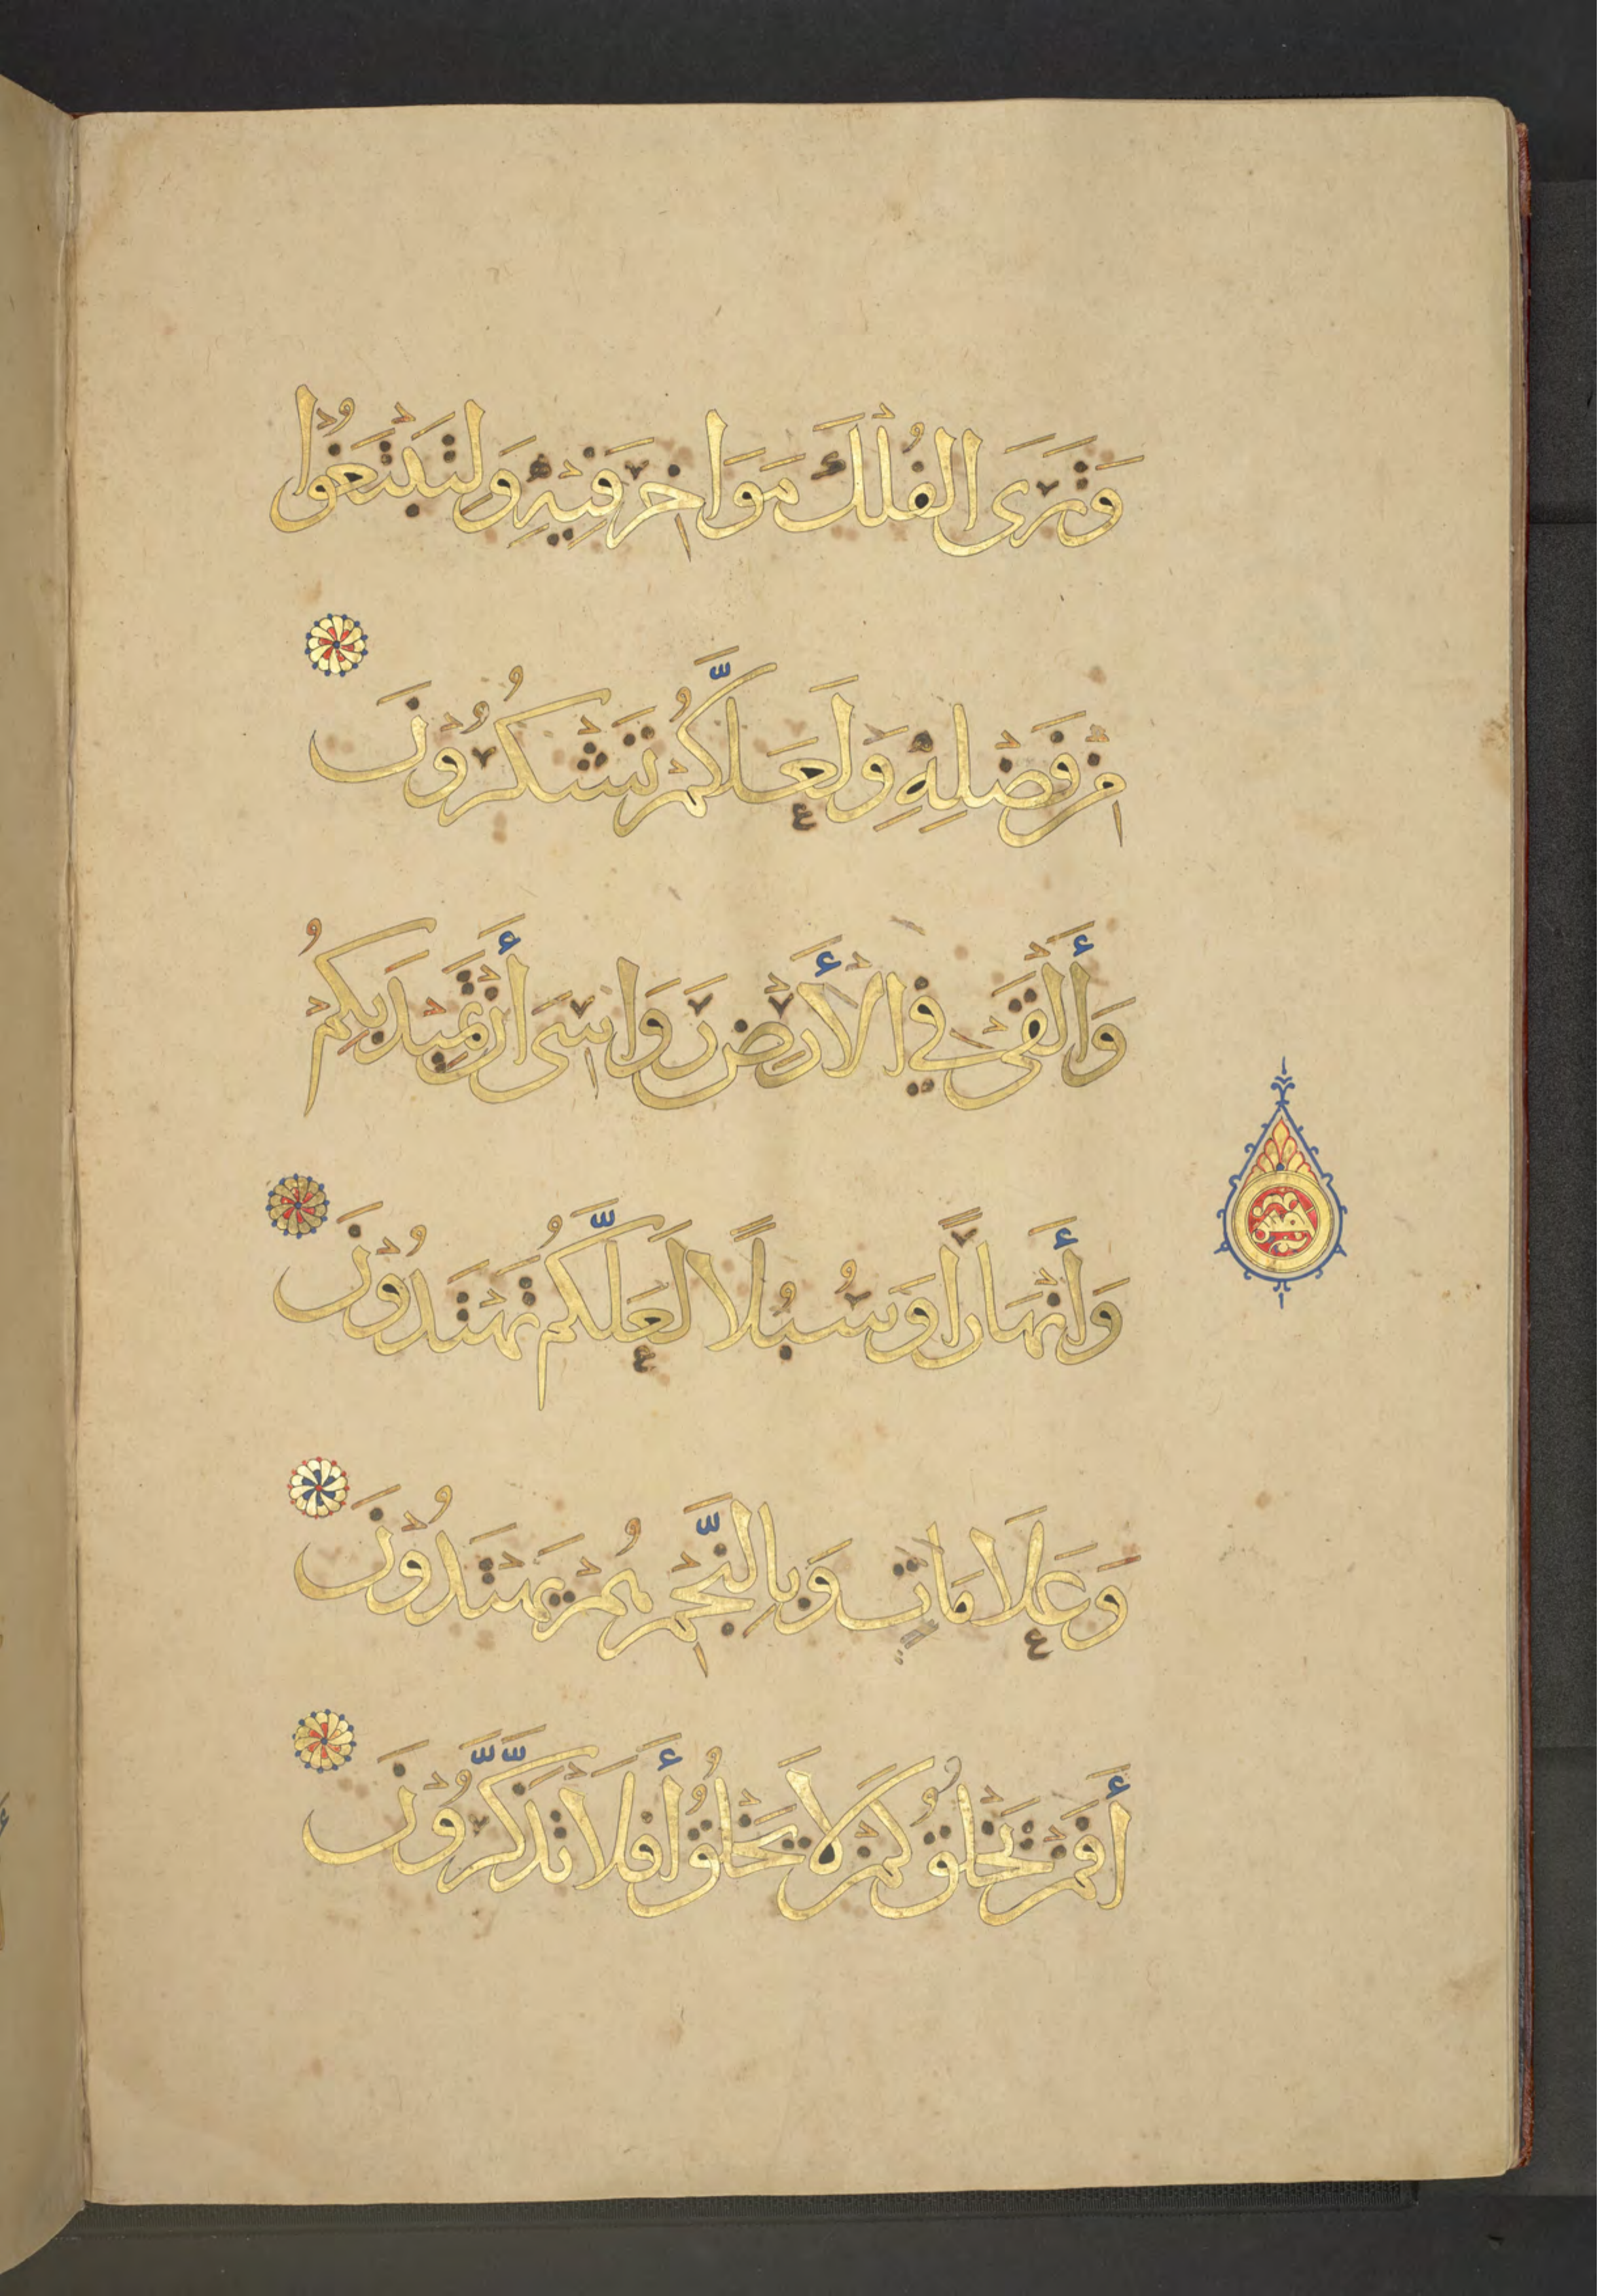 وَتَرَى الْفُلْكَ مَوَاخِرَ فِيهِ وَلِتَبْتَغُوا
مِنْ فَضْلِهِ وَلَعَلَّكُمْ تَشْكُرُونَ
وَأَلْقَى فِي الْأَرْضِ رَوَاسِيَ أَنْ تَمِيدَ بِكُمْ
وَأَنْهَارًا وَسُبُلًا لَعَلَّكُمْ تَهْتَدُونَ
وَعَلَامَاتٍ وَبِالنَّجْمِ هُمْ يَهْتَدُونَ
أَفَمَنْ يَخْلُقُ كَمَنْ لَا يَخْلُقُ أَفَلَا تَذَكَّرُونَ